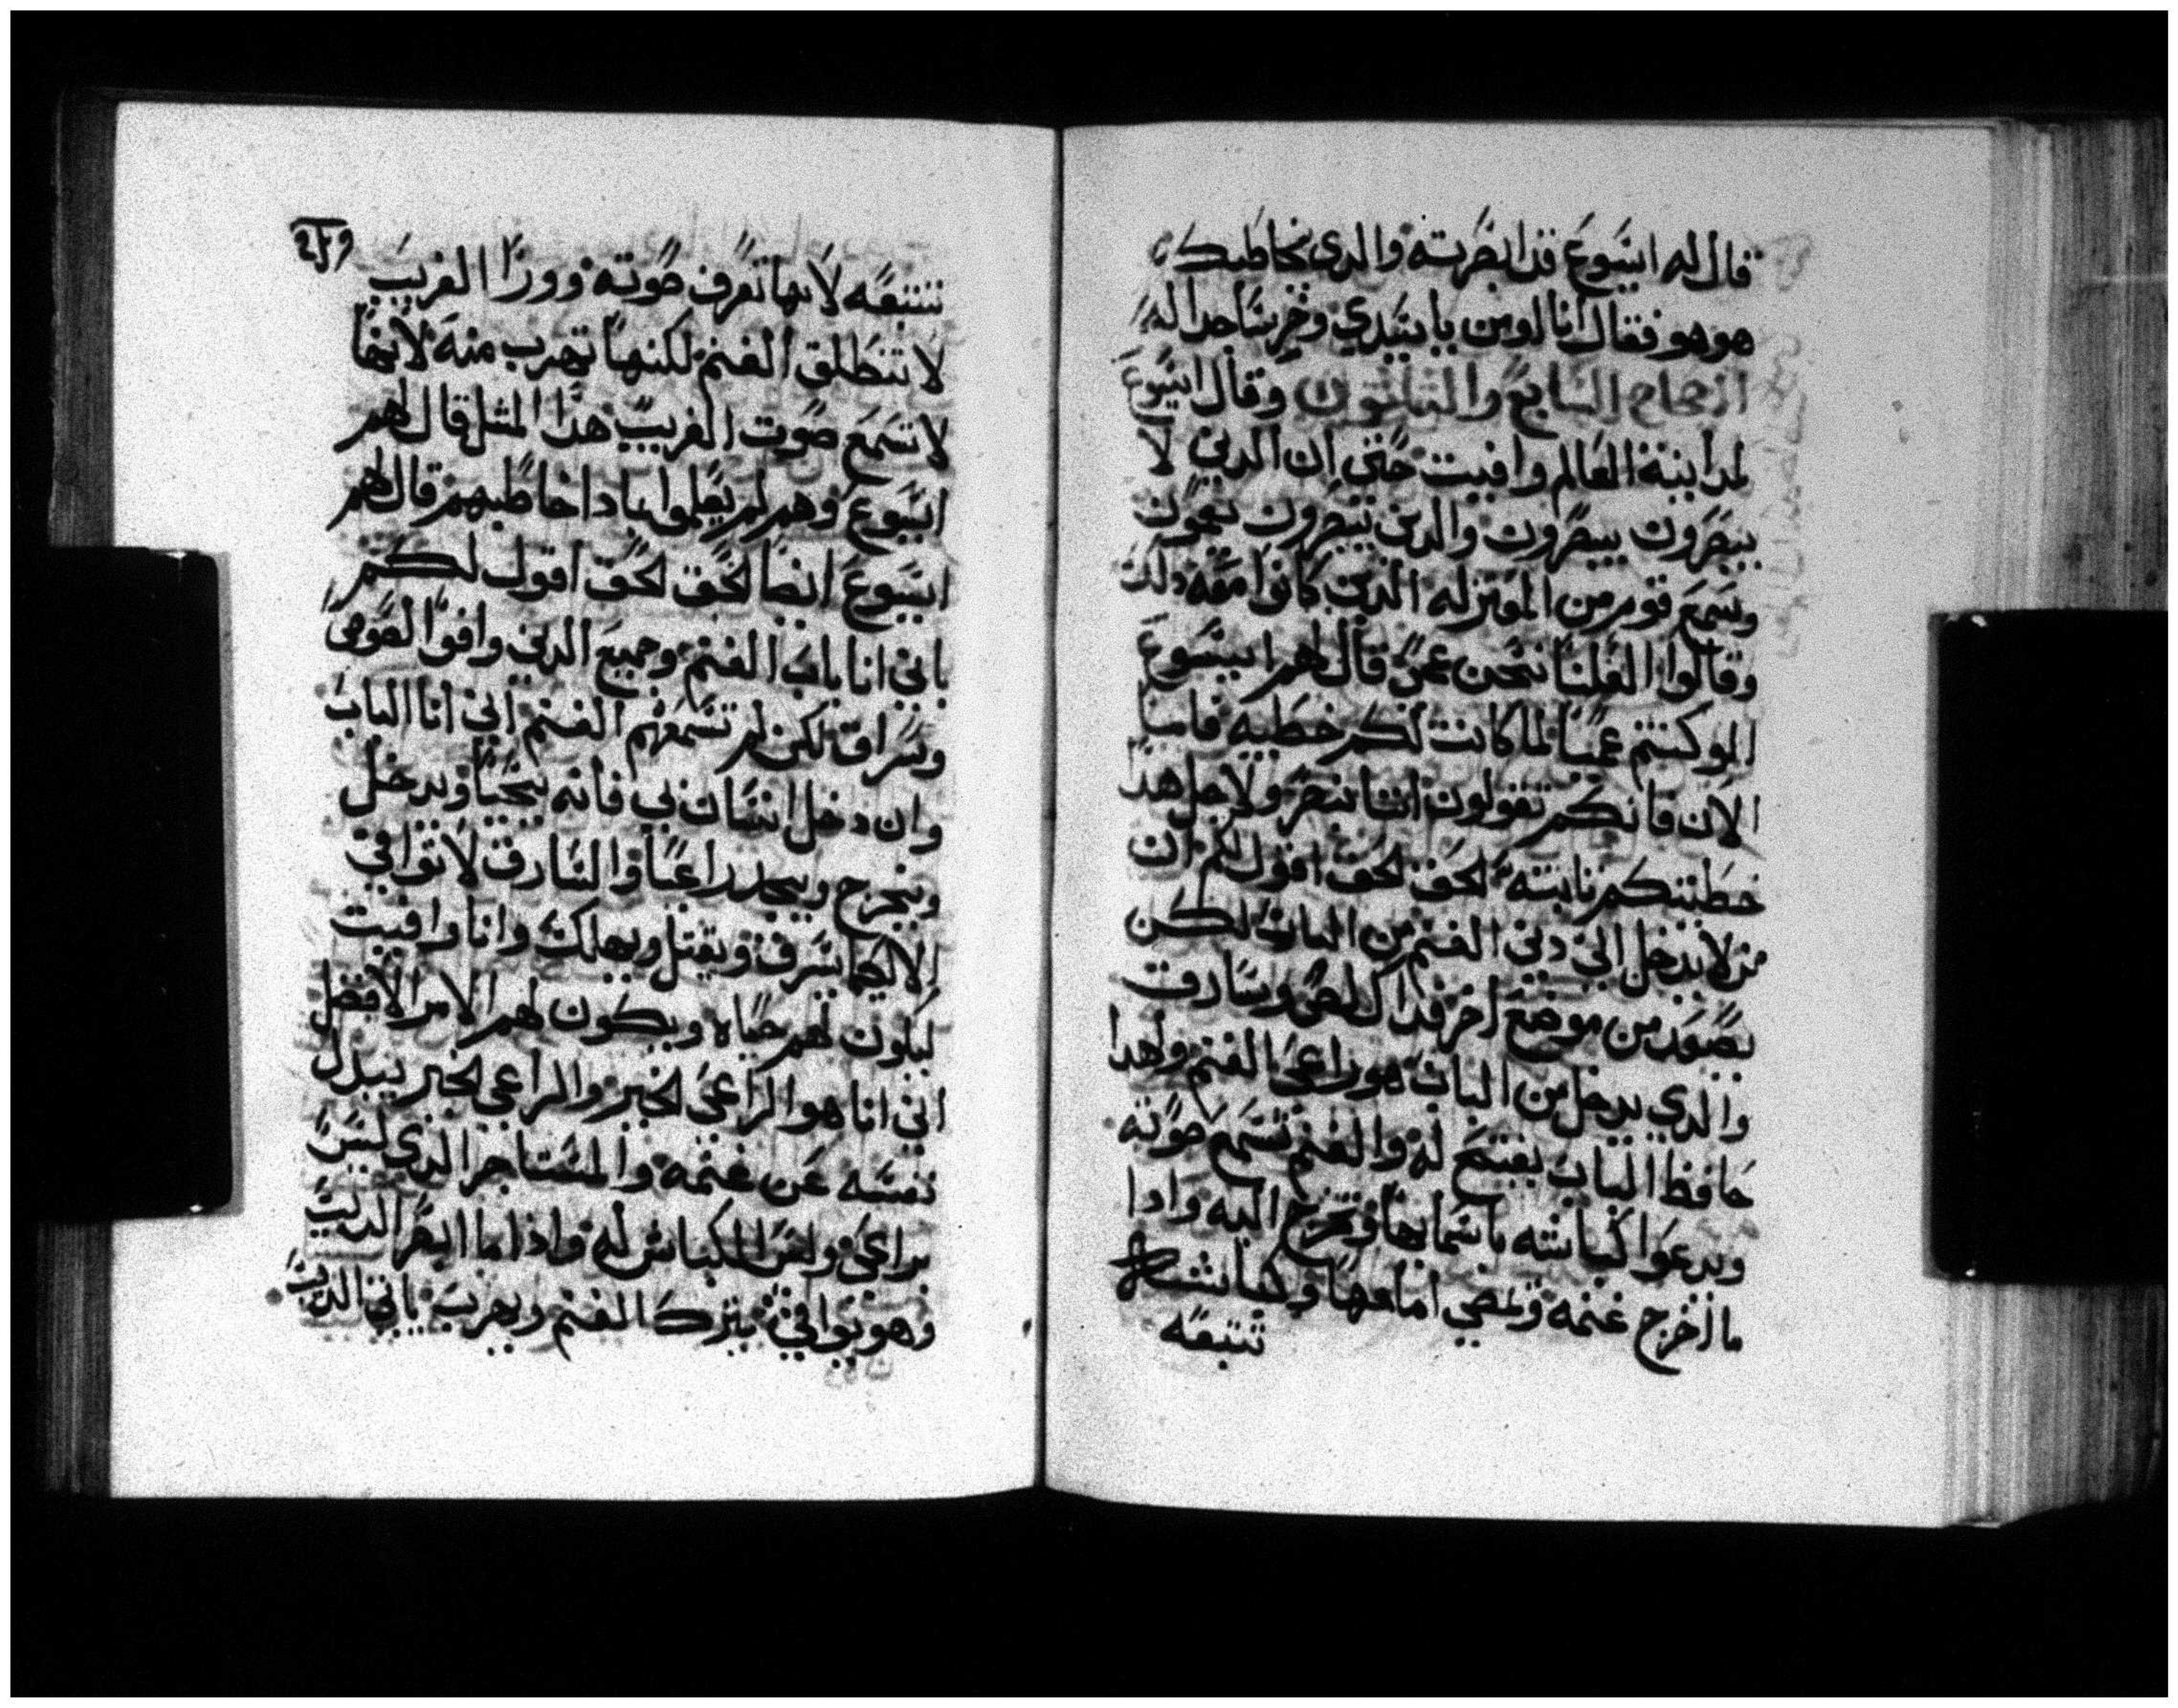 قال له ايسوع قد ابصرته والدى يخاطبك
هو هو فقال انا اومن يا سيدي وخر ساجدا له
الاصحاح السابع والثلثون وقال ايسوع
لمداينة العالم وافيت حتي ان الدين لا
يبصرون يبصرون والدين يبصرون يعمون
وسمع قوم من المعتزله الدين كانوا معه دلك
وقالوا العلنا نحن عمي قال لهم ايسوع
لو كنتم عميا لما كانت لكم خطيه فاما
الان فانكم تقولون اننا نبصر ولاجل هدا
خطيتكم ثابته الحق الحق اقول لكم ان
من لا يدخل الي دير الغنم من الباب لكن
يصعد من موضع اخر فداك لص وسارق
والدي يدخل من الباب هو راعي الغنم ولهدا
حافظ الباب يفتح له والغنم تسمع صوته
ويدعوا كباشه باسمايها وتخرج اليه وادا
ما اخرج غنمه ويمضي امامها وكباشه
تتبعه
تتبعه لانها تعرف صوته وورا الغريب
لا تنطلق الغنم لكنها تهرب منه لانها
لا تسمع صوت الغريب هدا المثل قال لهم
ايسوع وهم لم يعلموا بمادا خاطبهم قال لهم
ايسوع ايضا الحق الحق اقول لكم
باني انا باب الغنم وجميع الدين وافوا لصوص
وسراق لكن لم تسمعهم الغنم اني انا الباب
وان دخل انسان بي فانه يحيا ويدخل
ويخرج ويجد راعيا والسارق لا يوافي
الا لكيما يسرق ويقتل ويهلك وانا وافيت
ليكون لهم حياه ويكون لهم الامر الافضل
اني انا هو الراعي الخير والراعي الخير يبدل
نفسه عن غنمه والمستاجر الدي ليس
براعي وليس الكباش له وادا ما ابصر الديب
وهو يوافي يترك الغنم ويهرب ياتي الديب